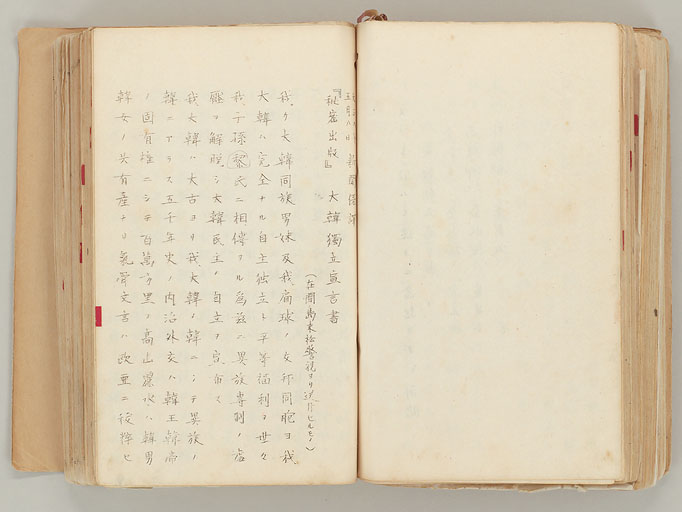 『秘密出版』 大韓獨立宣言書
(在間島末松警視ヨリ送付セルモノ)
我カ大韓同族男妹及我扁球ノ友邦同胞ヨ我
大韓ハ完全ナル自主独立ト平等福利ヲ世々
我子孫黎民ニ相傳スル為茲ニ異族專制ノ虐
壓ヲ解脱シ大韓民主ノ自立ヲ宣布ス
我大韓ハ太古ヨリ我大韓ノ韓ニシテ異族ノ
韓ニアラス五千年史ノ内治外交ハ韓王韓帝
ノ固有権ニシテ百萬方里ノ高山麗水ハ韓男
韓女ノ共有産ナリ氣骨文言ハ欧亜ニ抜粋セ